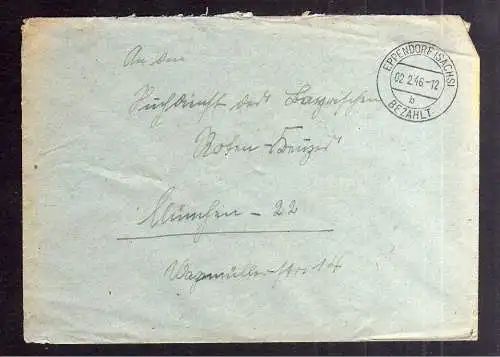 An den
Suchdienst des Bayrischen
Roten Kreuzes
München - 22
Wagmüller-Str. 14
EPPENDORF (SACHS)
02.2.46-12
b
BEZAHLT